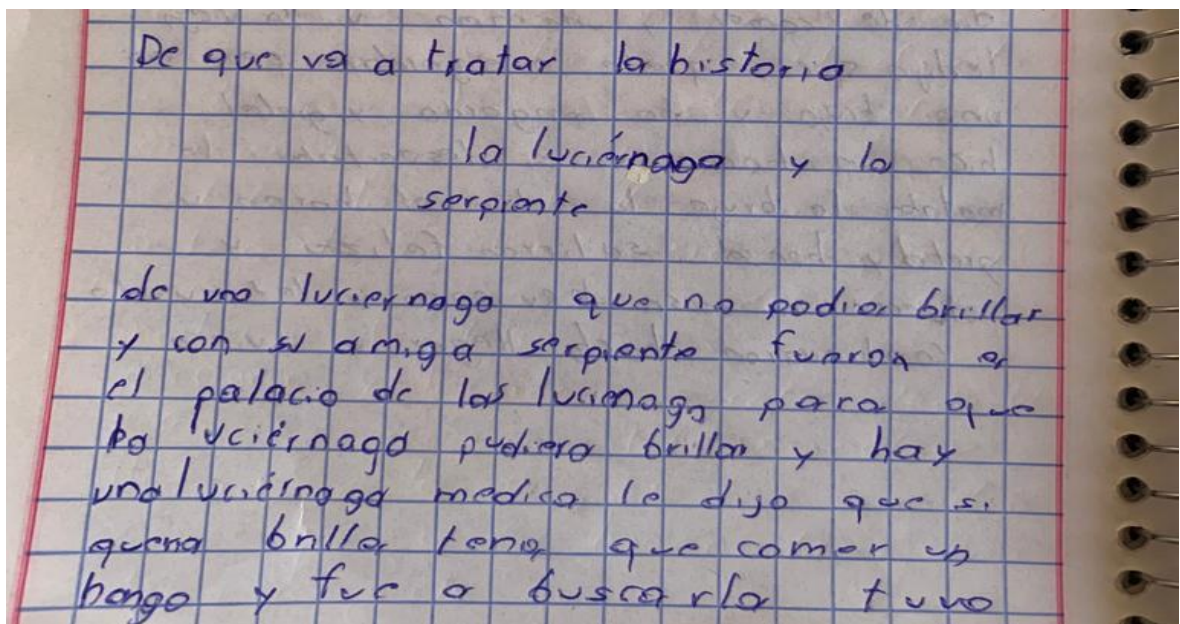 De que va a tratar la historia
la luciérnaga y la
serpiente
de una luciernaga que no podia brillar
y con su amiga serpiente fueron a
el palacio de las lucirnaga para que
la luciérnaga pudiera brillar y hay
una luciérnaga medica le dijo que si
queria brilla tenia que comer un
hongo y fue a buscarla tuvo